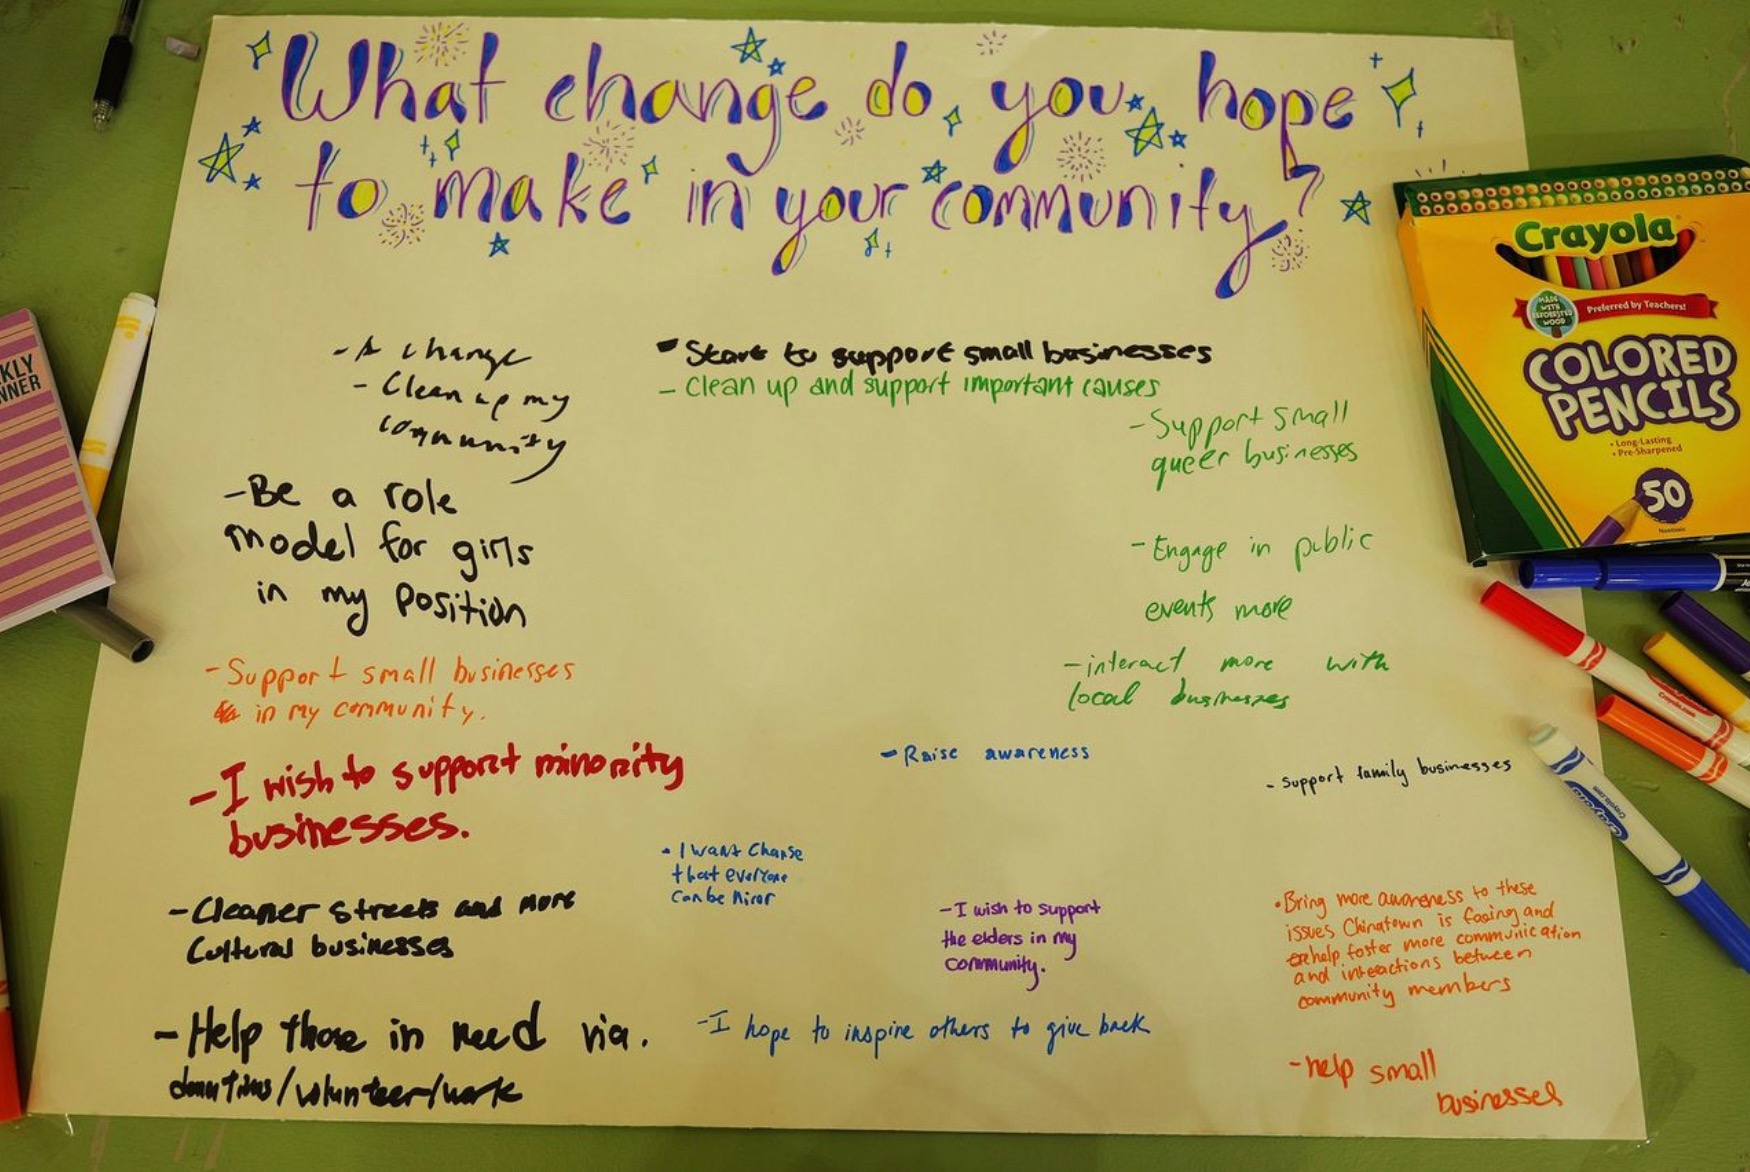 What change do you hope
to make in your community?
- A change
- Clean up my
community
- Be a role
model for girls
in my position
- Support small businesses
in my community.
- I wish to support minority
businesses.
- Cleaner streets and more
Cultural businesses
- Help those in need via.
donations/volunteer/work
- Start to support small businesses
- Clean up and support important causes
- Support small
queer businesses
- Engage in public
events more
- interact more with
local businesses
- Raise awareness
- support family businesses
• I want Change
that everyone
can be
- I wish to support
the elders in my
community.
• Bring more awareness to these
issues Chinatown is facing and
help foster more communication
and interactions between
community members
- I hope to inspire others to give back
- help small
businesses
KLY
NNER
Crayola
MADE
WITH
REFORESTED
WOOD
Preferred by Teachers!
COLORED
PENCILS
• Long-Lasting
• Pre-Sharpened
50
Nontoxic
Crayola.com
Crayola
Crayola.com